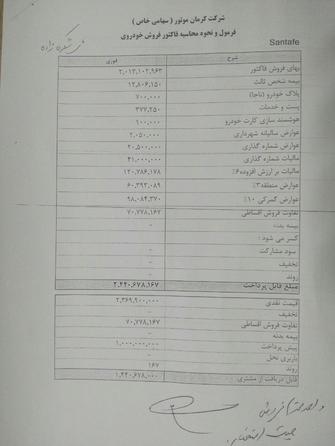 شرکت کرمان موتور ( سهامی خاص )
فرمول و نحوه محاسبه فاکتور فروش خودروی
Santafe
شرح فوری
بهای فروش فاکتور ۲,۰۱۳,۱۰۲,۹۶۳
بیمه شخص ثالث ۱۲,۸۰۶,۱۵۰
پلاک خودرو (ناجا) ۷۰۰,۰۰۰
پست و خدمات ۳۷۷,۲۵۰
هوشمند سازی کارت خودرو ۱۰۰,۰۰۰
عوارض سالیانه شهرداری ۲,۰۵۰,۰۰۰
عوارض شماره گذاری ۲۰,۵۰۰,۰۰۰
مالیات شماره گذاری ۴۱,۰۰۰,۰۰۰
مالیات بر ارزش افزوده۶٪ ۱۲۰,۷۸۶,۱۷۸
عوارض منطقه۳٪ ۶۰,۳۹۳,۰۸۹
عوارض گمرکی ۱۰٪ ۹۸,۰۸۴,۳۷۰
تفاوت فروش اقساطی ۷۰,۷۷۸,۱۶۷
بیمه بدنه -
کسر می شود :
سود مشارکت -
تخفیف -
روند
مبلغ قابل پرداخت ۲,۴۴۰,۶۷۸,۱۶۷
قیمت نقدی ۲,۳۶۹,۹۰۰,۰۰۰
تخفیف -
تفاوت فروش اقساطی ۷۰,۷۷۸,۱۶۷
بیمه بدنه -
پیش پرداخت ۱,۰۰۰,۰۰۰,۰۰۰
باربری نحل -
روند ۱۶۷
قابل دریافت از مشتری ۱,۴۴۰,۶۷۸,۰۰۰